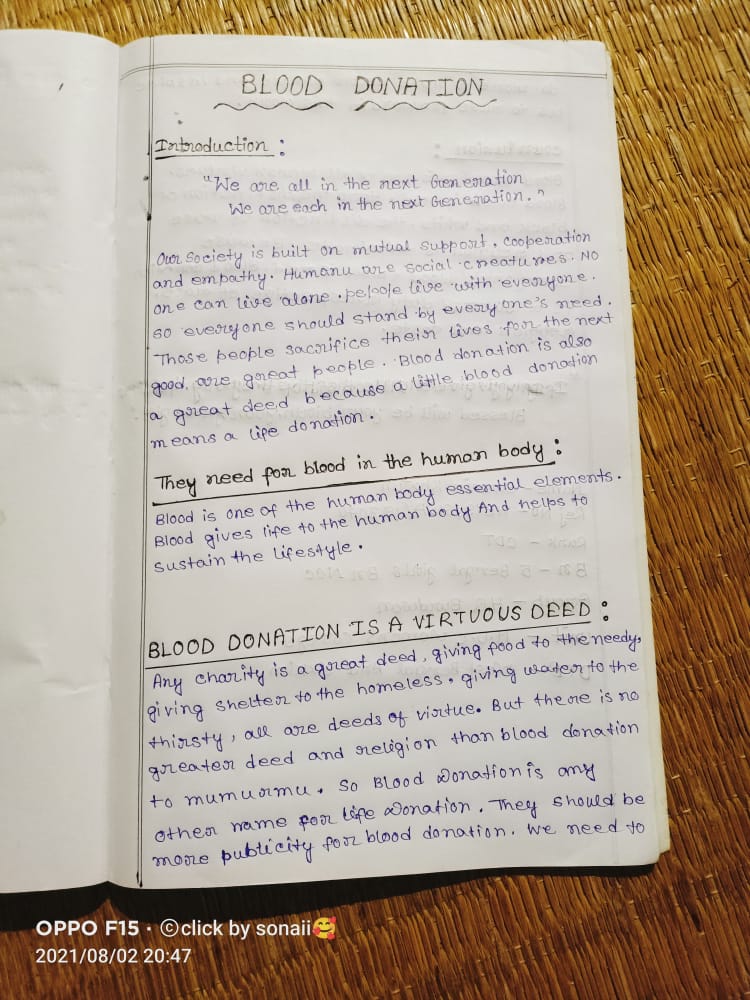 BLOOD DONATION
Introduction :
"We are all in the next Generation
We are each in the next Generation."
Our Society is built on mutual support. cooperation
and empathy. Humanu are social creatures. NO
one can live alone. pelople live with everyone.
so everyone should stand by every one's need.
Those people sacrifice their lives for the next
good, are great people. Blood donation is also
a great deed because a little blood donation
means a life donation.
They need for blood in the human body :
Blood is one of the human body essential elements.
Blood gives life to the human body And helps to
sustain the lifestyle.
BLOOD DONATION IS A VIRTUOUS DEED :
Any charity is a great deed, giving food to the needy,
giving shelter to the homeless. giving water to the
thirsty, all are deeds of virtue. But there is no
greater deed and religion than blood donation
to mumurmu. So Blood Donation is any
other name for life Donation. They should be
more publicity for blood donation. We need to
OPPO F15 · ©click by sonaii🥰
2021/08/02 20:47